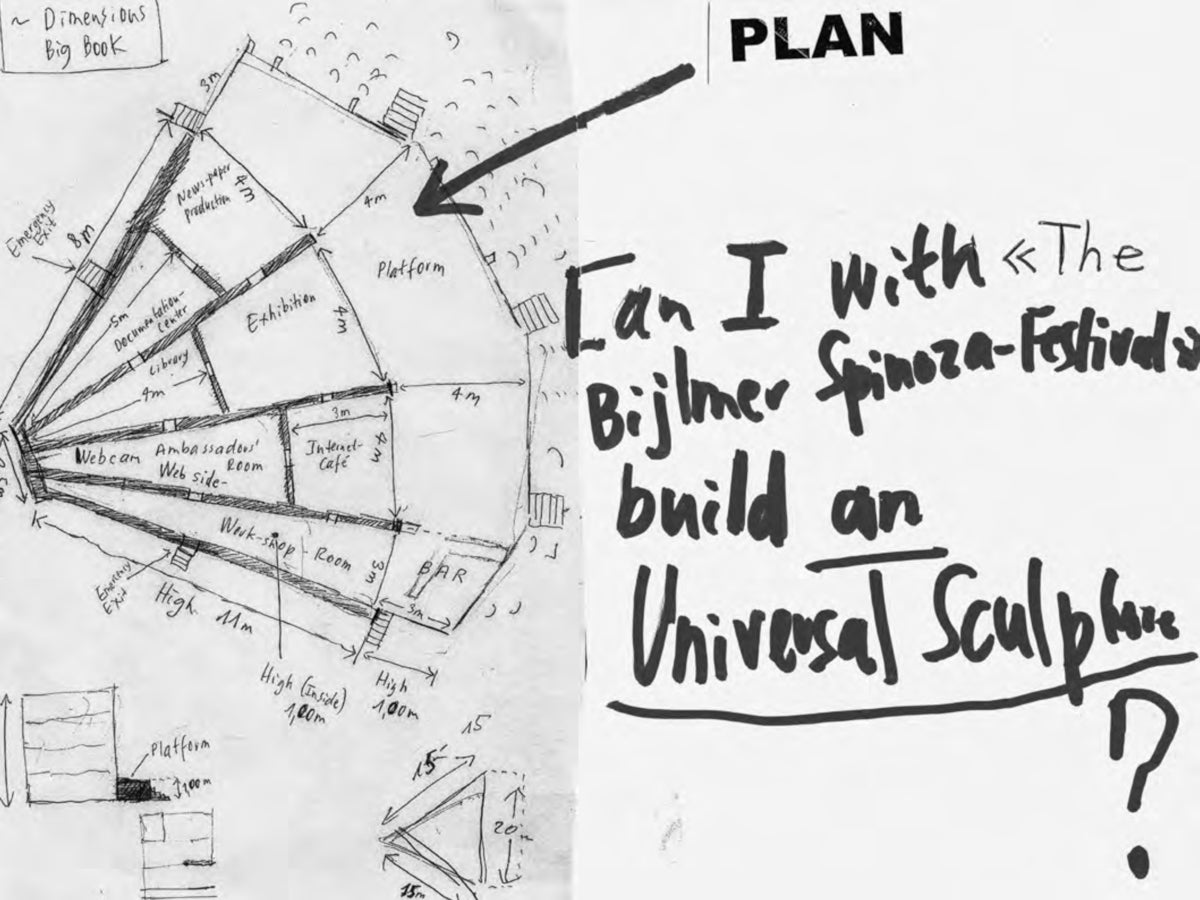 ~ Dimensions
Big Book
PLAN
3m
News-paper
Production
4m
4m
Emergency
Exit
8m
Platform
5m
Documentation-
Center
Exhibition
4m
Library
4m
4m
3m
Webcam Ambassadors'
Room
Web side-
Internet-
Café
4m
Work-shop-Room
3m
BAR
3m
Emergency
Exit
High 11m
High (Inside)
1,00m
High
1,00m
Platform
1,00m
15
15
20m
15m
Can I with «The
Bijlmer Spinoza-Festival»
build an
Universal Sculpture
?